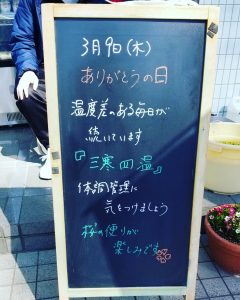 3月9日(木)
ありがとうの日
温度差のある毎日が
続いています
『三寒四温』
体調管理に
気をつけましょう
桜の便りが
楽しみです